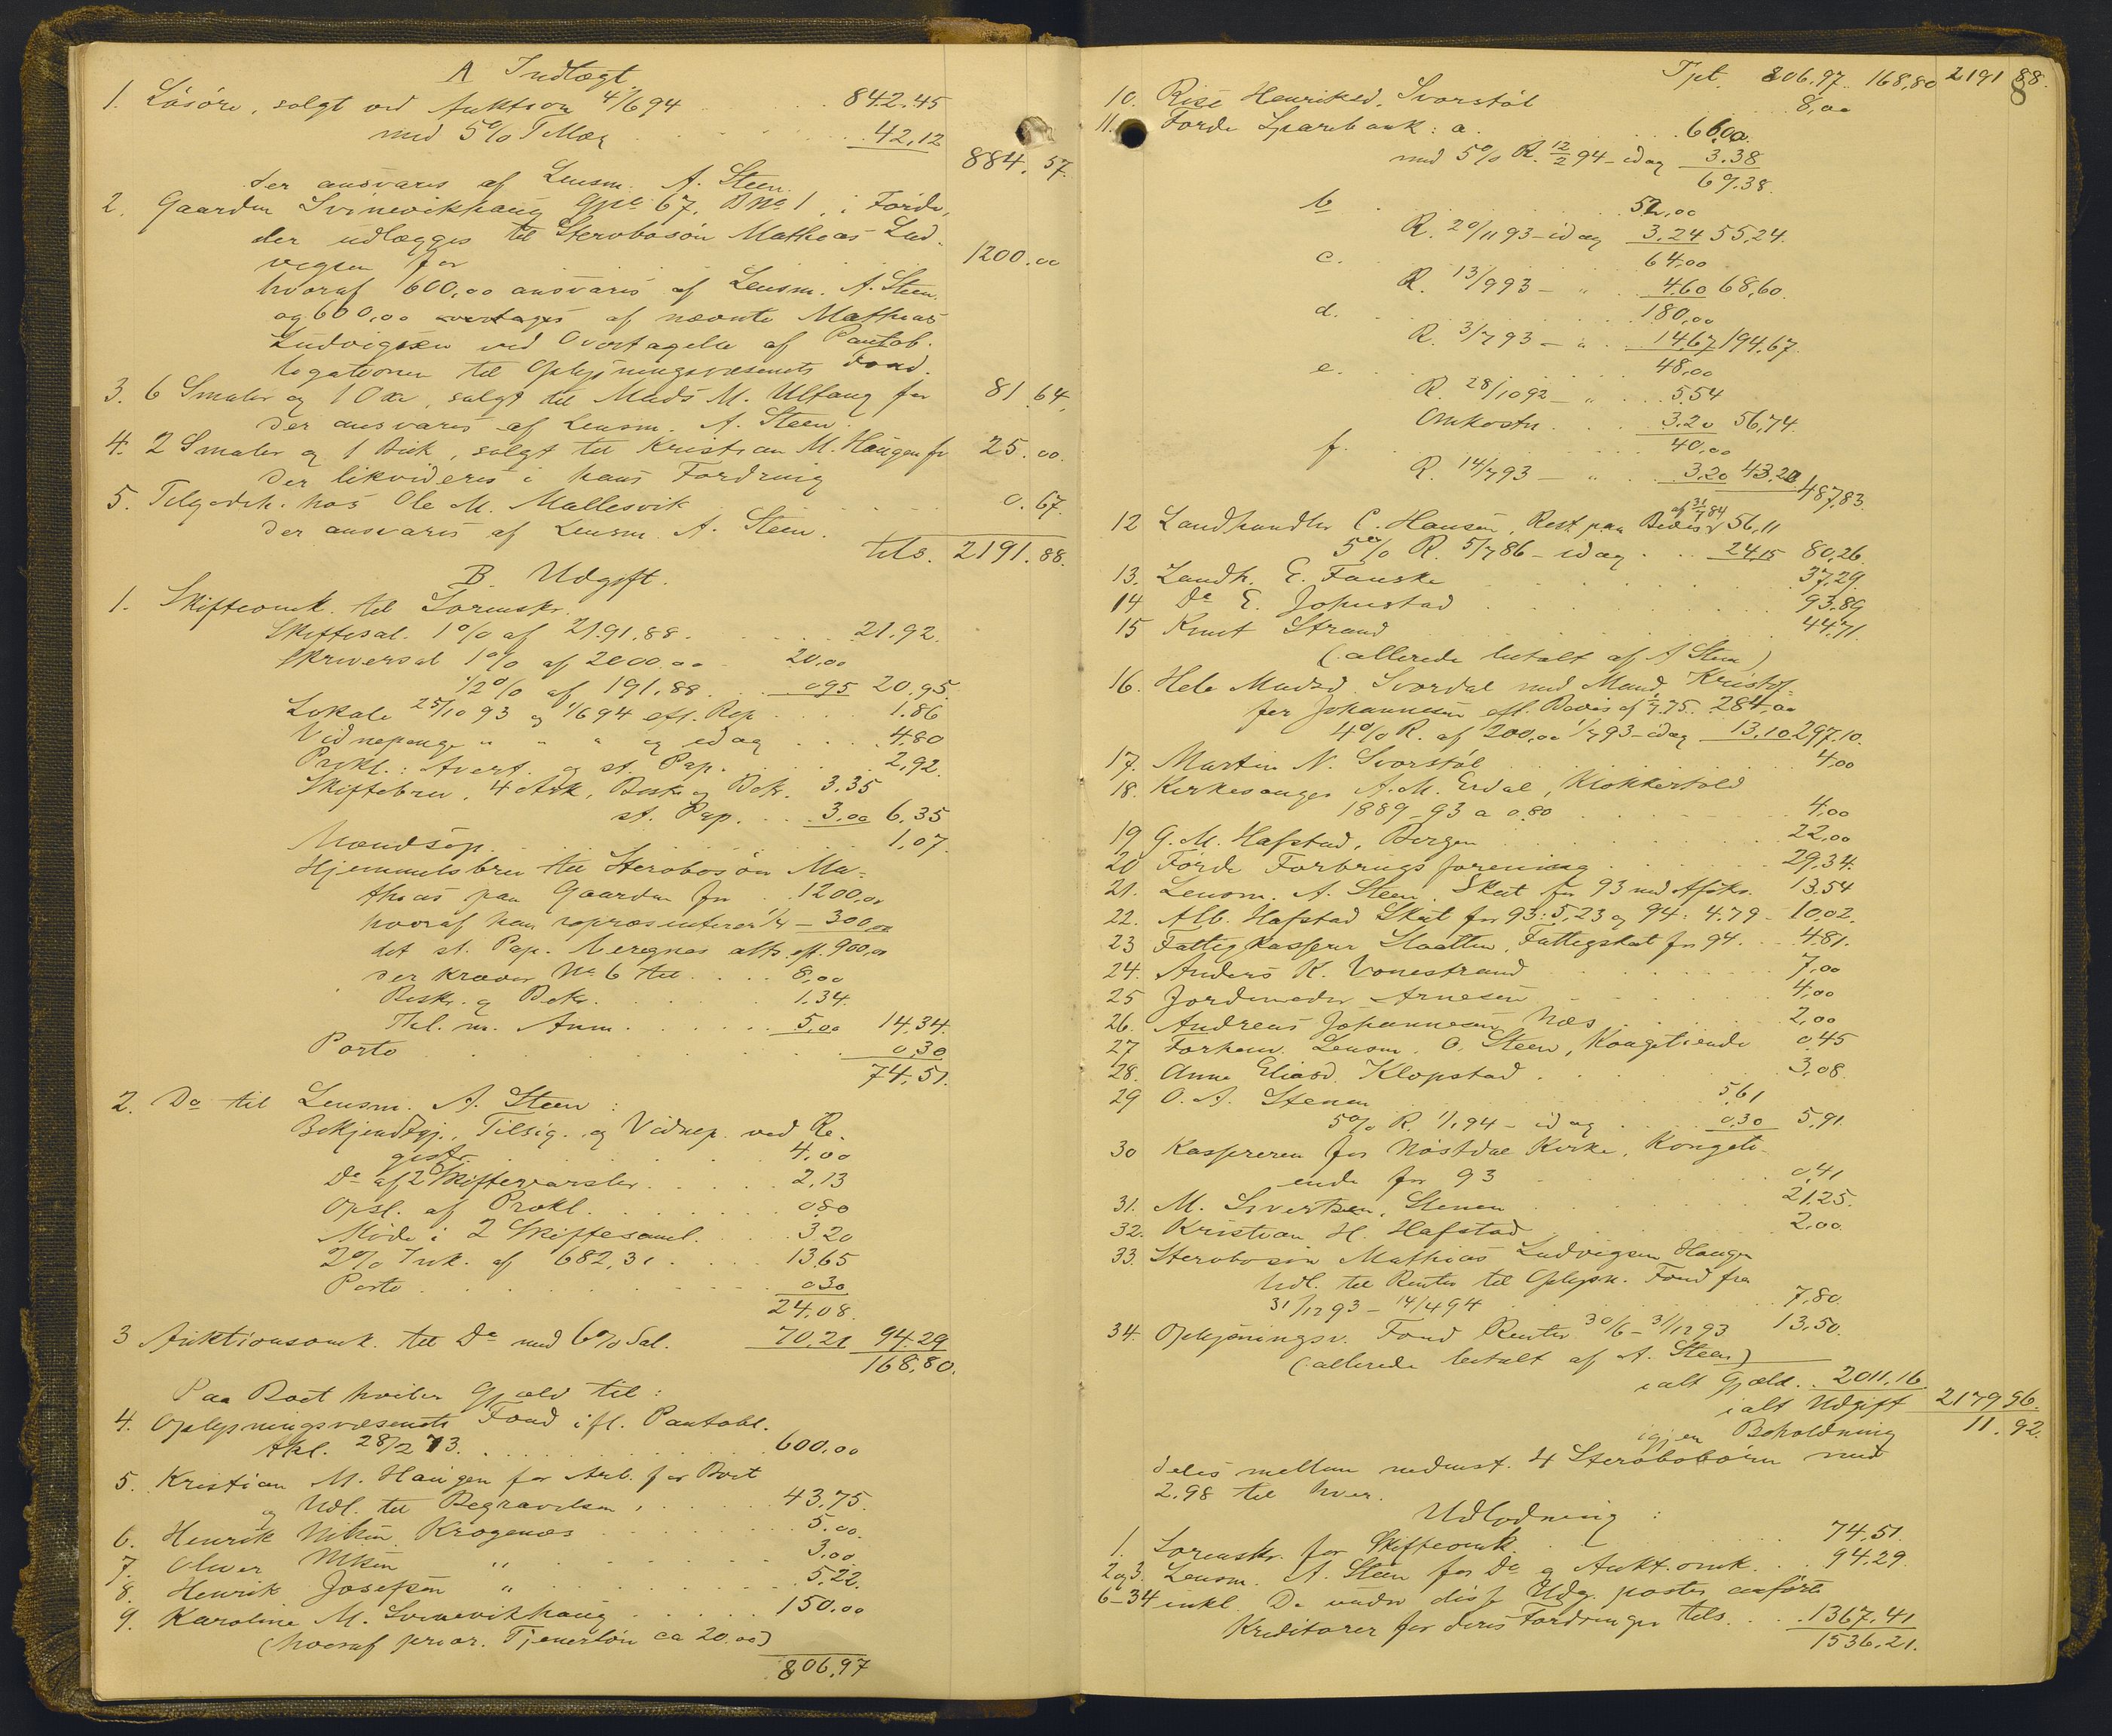 A Indtægt
1. Løsøre, solgt ved Auktion 4/6 94 . . . 842.45
med 5% Tillæg . . . 42,12
884.57.
der ansvares af Lensm. A. Steen.
2. Gaarden Svinevikhaug Gno 67, Bno 1, i Førde,
der udlægges til Sterbosøn Mathias Lud-
vigsen for . . . 1200.00
hvoraf 600,00 ansvares af Lensm. A. Steen.
og 600,00 overtages af nævnte Mathias
Ludvigsen ved Overtagelse af Pantob-
ligationen til Oplysningsvæsenets Fond.
3. 6 Smaler og 1 Oxe, solgt til Mads M. Ulfaug for 81.64,
der ansvares af Lensm. A. Steen.
4. 2 Smaler og 1 Buk, solgt til Kristian M. Haugen for 25.00.
der likvideres i hans Fordring
5. Tilgodeh. hos Ole M. Mallesvik . . . 0.67.
der ansvares af Lensm. A. Steen.
tils. 2191.88.
B. Udgift.
1. Skifteomk. til Sorenskr.
Skiftesal. 1% af 2191.88. . . . 21.92.
Skriversal 1% af 2000.00 20,00
1/2% af 191.88. . . 0,95 20.95.
Lokale 25/10 93 og 4/6 94 efl. Rep . . . 1.86
Vidnepenge " " " og idag . . . 4,80
Prokl.: Avert. og st. Pap. . . . 2,92.
Skiftebrev, 4 Ark, Besk. og Bekr. 3.35
st. Pap. . . 3.00 6.35
Mændsop. . . . 1,07.
Hjemmelsbrev til Sterbosøn Ma-
thias paa Gaarden for . . 1200,00
hvoraf han repræsenterer 1/4 – 300,00
det st. Pap. beregnes alts. eft. 900,00
der kræver No 6 til . . . 8,00
Beskr. og Bekr. . . . 1.34.
Thl. m. Anm. . . . 5,00 14,34.
Porto . . . 0,30
74,51.
2. Do til Lensm. A. Steen:
Bekjendtgj., Tilsig. og Vidnep. ved Re-
gistr. . . . 4.00
Do af 2 Skiftevarsler . . . 2,13
Opsl. af Prokl. . . . 0,80
Møde i 2 Skiftesaml. . . 3.20
2% Ink. af 682,31 . . . 13,65
Porto . . . 0,30
24.08.
3 Auktionsomk. til Do med 6% Sal. 70.21 94.29
168,80.
Paa Boet hviler Gjæld til:
4. Oplysningsvæsenets Fond ifl. Pantobl.
tkl. 28/2 73. . . . 600.00
5. Kristian M. Haugen for Arb. for Boet
og Udl. til Begravelsen . . . 43.75.
6. Henrik Nilsen Krogenæs . . . 5.00.
7. Oliver Nilsen " . . . 3,00.
8. Henrik Josefsen " . . . 5,22.
9. Karoline M. Svinevikhaug . . . 150.00
(hvoraf prior. Tjenerløn ca 20.00)
806,97
Tpt. 806.97. 168,80 2191 88.
8
10. Rise Henriksd. Svorstøl . . . 8,00
11. Førde Sparebank: a. . . . 66,00.
med 5% R. 12/2 94 – idag 3.38
69.38.
b . . . 52,00
R. 20/11 93 – idag 3.24 55,24.
c. . . . 64.00
R. 13/9 93 – " . . 4.60 68,60.
d. . . . 180,00
R. 3/7 93 – " . . 14.67 194,67.
e. . . . 48,00
R. 28/10 92 – " . . 5.54
Omkostn . . . 3.20 56,74.
f. . . . 40,00
R. 14/7 93 – " . . 3,20 43.20 487,83.
af 31/7 84
12 Landhandler C. Hansen, Rest paa Bevis 56,11
5% R. 5/7 86 – idag . . . 24,15 80,26.
13. Landh. E. Fauske . . . 37,29
14 Do E. Johnstad . . . 93.89
15 Knut Strand . . . 44,71.
(allerede betalt af A Steen)
16. Hele Madsd. Svordal med Mand Kristof-
fer Johannesen efl. Bevis af 1/7 75. 284,00
4% R. af 200,00 1/7 93 – idag 13,10 297.10.
17. Martin N. Svorstøl . . . 4,00
18. Kirkesanger A. M. Erdal, Klokkertold
1889–93 a 0.80 . . . 4,00
19 G. M. Hafstad, Bergen . . . 22,00
20 Førde Forbrugsforening . . . 29.34.
21. Lensm. A. Steen, Skat for 93 med Afsks. 13.54
22. Alb. Hafstad Skat for 93: 5,23 og 94: 4.79 – 10,02.
23 Fattigkasserer Slaatten, Fattigskat for 94. . . 4,81.
24. Anders K. Vonestrand . . . 7,00
25 Jordemoder Arnesen . . . 4,00
26. Andreas Johannesen Næs . . . 2,00
27 Forhenv. Lensm. O. Steen, Kongetiende 0,45
28. Anne Eliasd. Klopstad . . . 3,08.
29 O. A. Stenen . . . 5,61
5% R. 1/1 94 – idag . . . 0,30 5,91.
30 Kassereren for Nøstdal Kirke, Kongeti-
ende for 93 . . . 0,41
31. M. Sivertsen, Stenen . . . 21.25.
32. Kristian H. Hafstad . . . 2,00.
33. Sterbosøn Mathias Ludvigsen Haugen
Udl. til Renter til Oplysn. Fond fra
31/12 93 – 14/4 94 . . . 7,80.
34. Oplysningsv. Fond Renter 30/6 – 31/12 93 13,50.
(allerede betalt af A. Steen)
ialt Gjæld. . . 2011,16
ialt Udgift 2179 96.
igjen Beholdning 11.92.
deles mellem nedenst. 4 Sterbobørn med
2.98 til hver.
Udlodning:
1. Sorenskr. for Skifteomk. . . . 74,51.
2 og 3. Lensm. A. Steen for Do og Aukt.omk. . . 94.29.
6–34 inkl. De under disse Udg. poster anførte
Kreditorer for deres Fordringer tils. . . . 1367.41
1536,21.